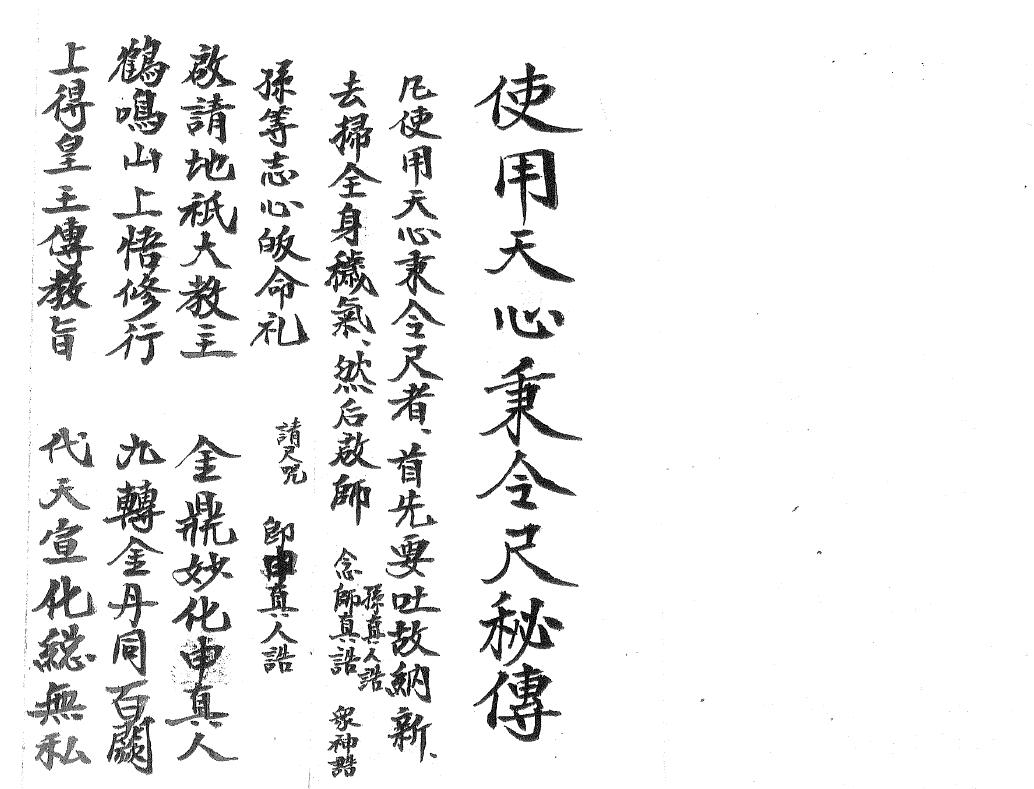 使用天心秉令尺秘傳
凡使用天心秉令尺者、首先要吐故納新、
去掃全身穢氣、然后啟師 念師真誥 孫真人誥 眾神誥
孫等志心皈命礼 請尺咒 即申真人誥
啟請地祇大教主 金鼎妙化申真人
鶴鳴山上悟修行 九轉金丹同百闗
上得皇王傳教旨 代天宣化総無私